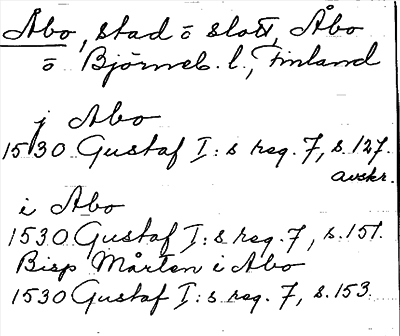 Åbo, stad o slott, Åbo
o Björneb. l., Finland
j Abo
1530 Gustaf I:s reg. 7, s. 127.
avskr.
i Abo
1530 Gustaf I:s reg. 7, s. 151.
Bisp Mårten i Abo
1530 Gustaf I:s reg. 7, s. 153.